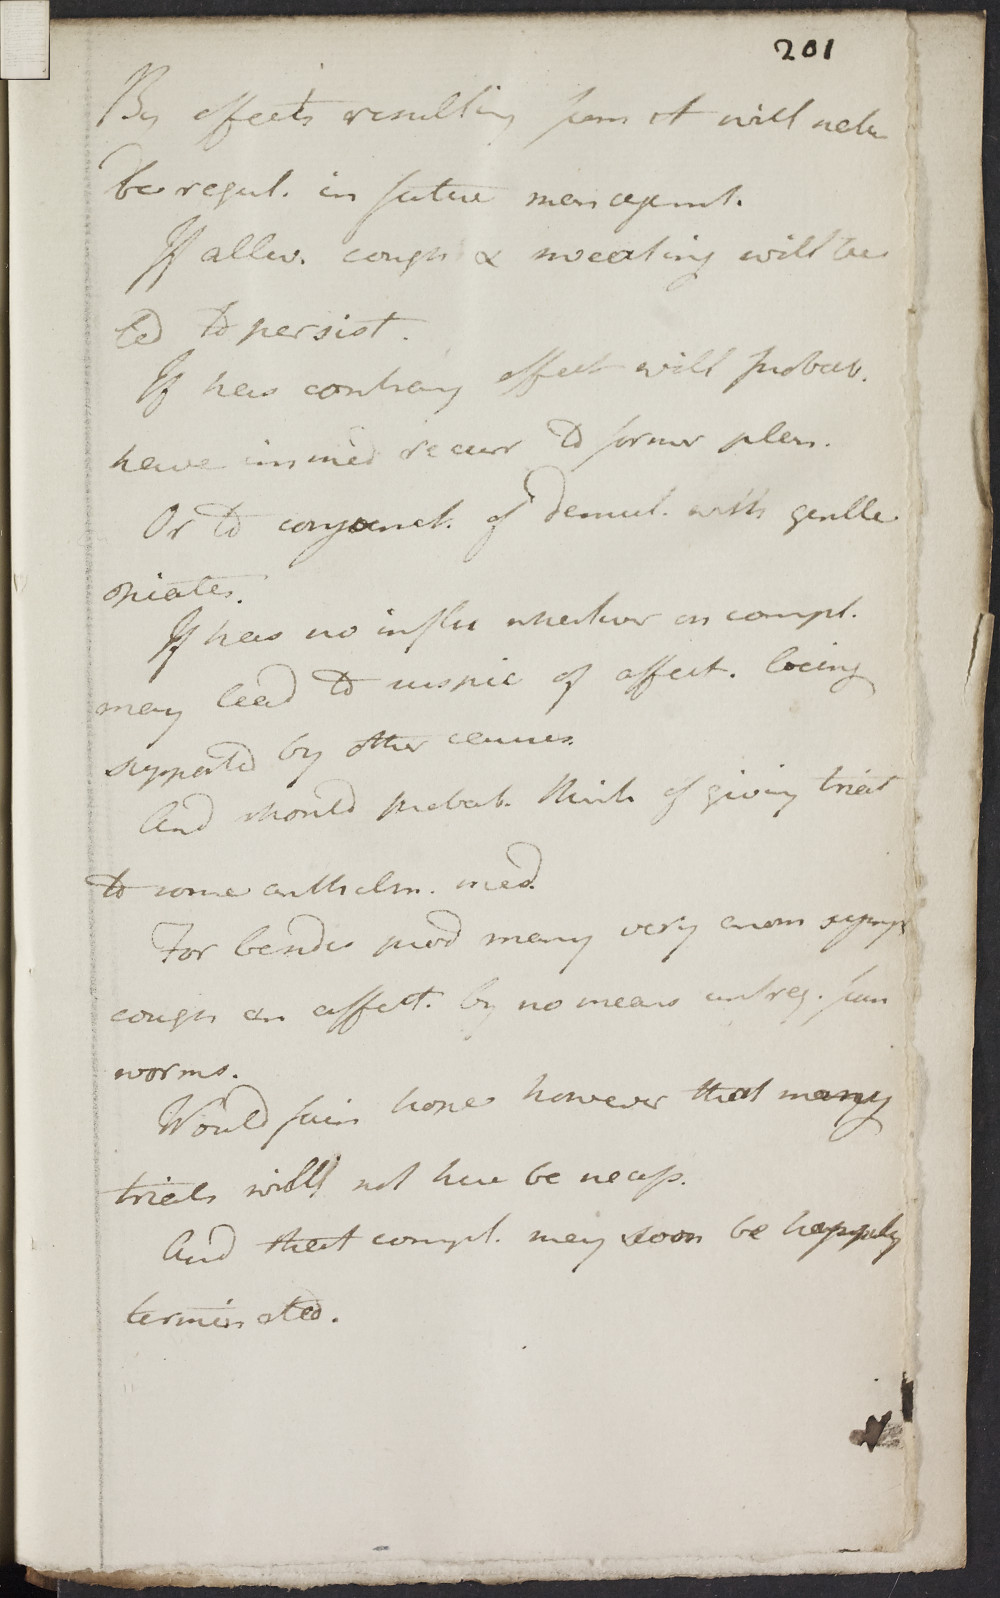 201
By effects resulting from it will natu
be regul. in future managemt.
If allev. cough & sweating will be
led to persist.
If has contrary effect will probab.
have immed recurr to former plan.
Or to conjunct. of demul. with gentle
opiates.
If has no influ whatever on compl.
may lead to suspic of affect. being
supported by other causes.
And should probab. think of giving trial
to some anthelm. med.
For besides prod many very anom symp
cough an affect. by no means unfreq. from
worms.
Would fain hope however that many
trials will not here be necess.
And that compl. may soon be happily
terminated.